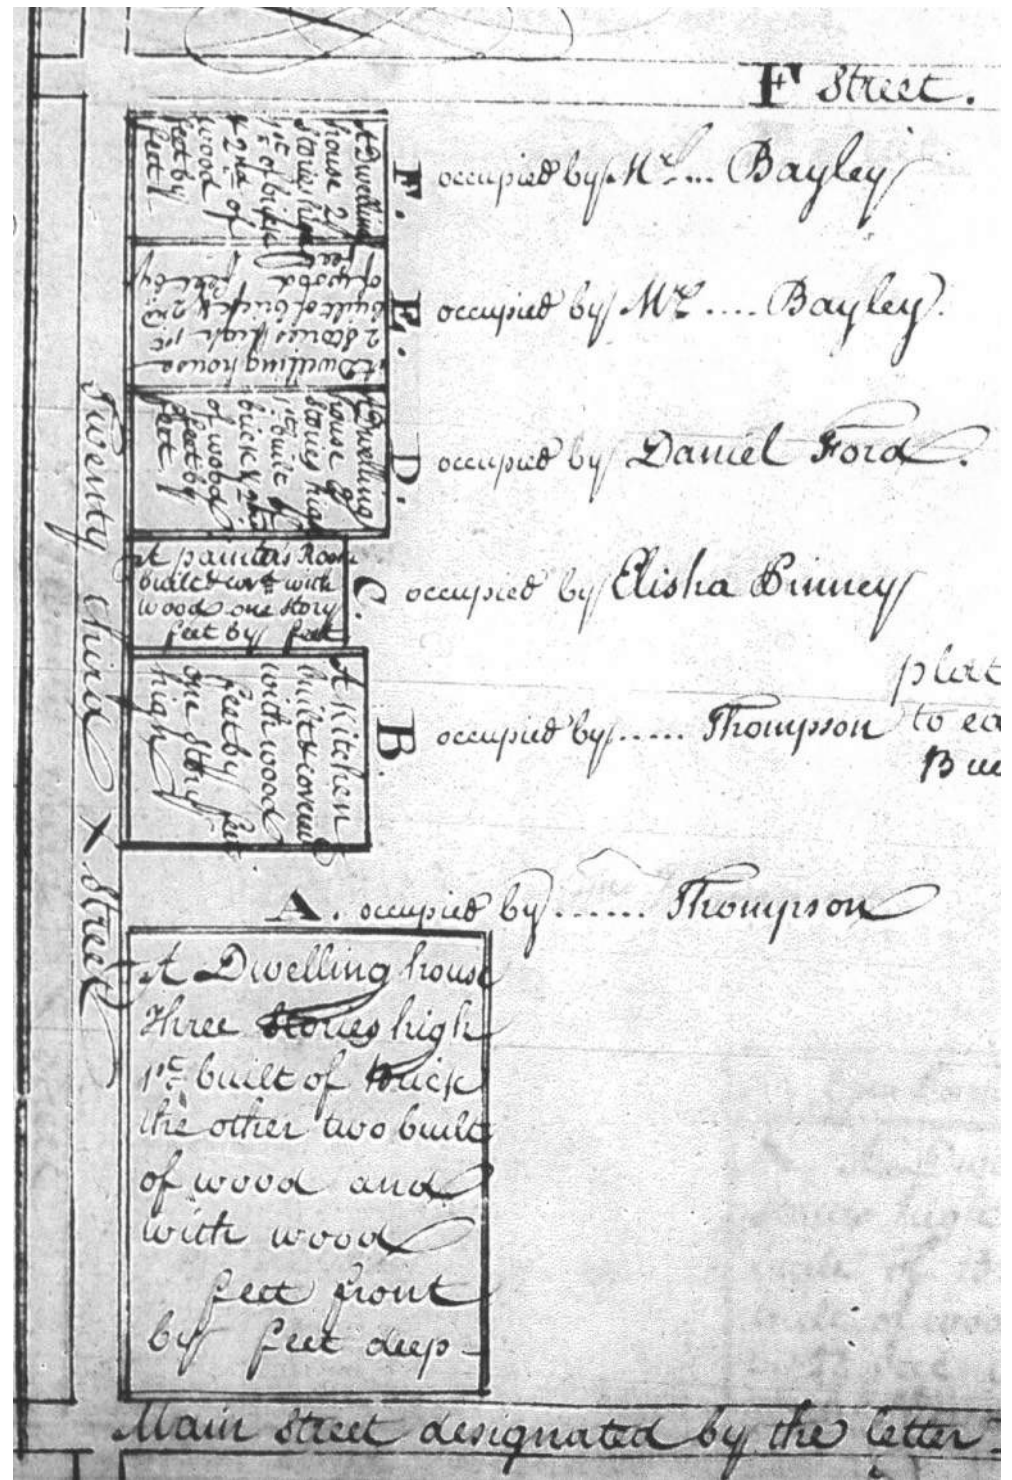 F Street.
A Dwelling
house 2
Stories high
1st of brick
& 2nd of
wood
feet by
feet
F. occupied by Mr... Bayley
A Dwelling house
2 Stories high 1st
built of brick & 2nd
of wood feet by
feet
E. occupied by Mr.... Bayley.
A Dwelling
house 2
Stories high
1st built of
brick & 2nd
of wood
feet by
feet
D. occupied by Daniel Ford.
A painters Room
built & cov'd with
wood one story
feet by feet
C. occupied by Elisha Pinney
A Kitchen
built & covered
with wood
feet by feet
one Story
high
B. occupied by..... Thompson
plat
to ea
Bui
A. occupied by...... Thompson
A Dwelling house
Three Stories high
1st built of Brick
the other two built
of wood and
with wood
feet front
by feet deep
Twenty third X Street
Main Street designated by the letter